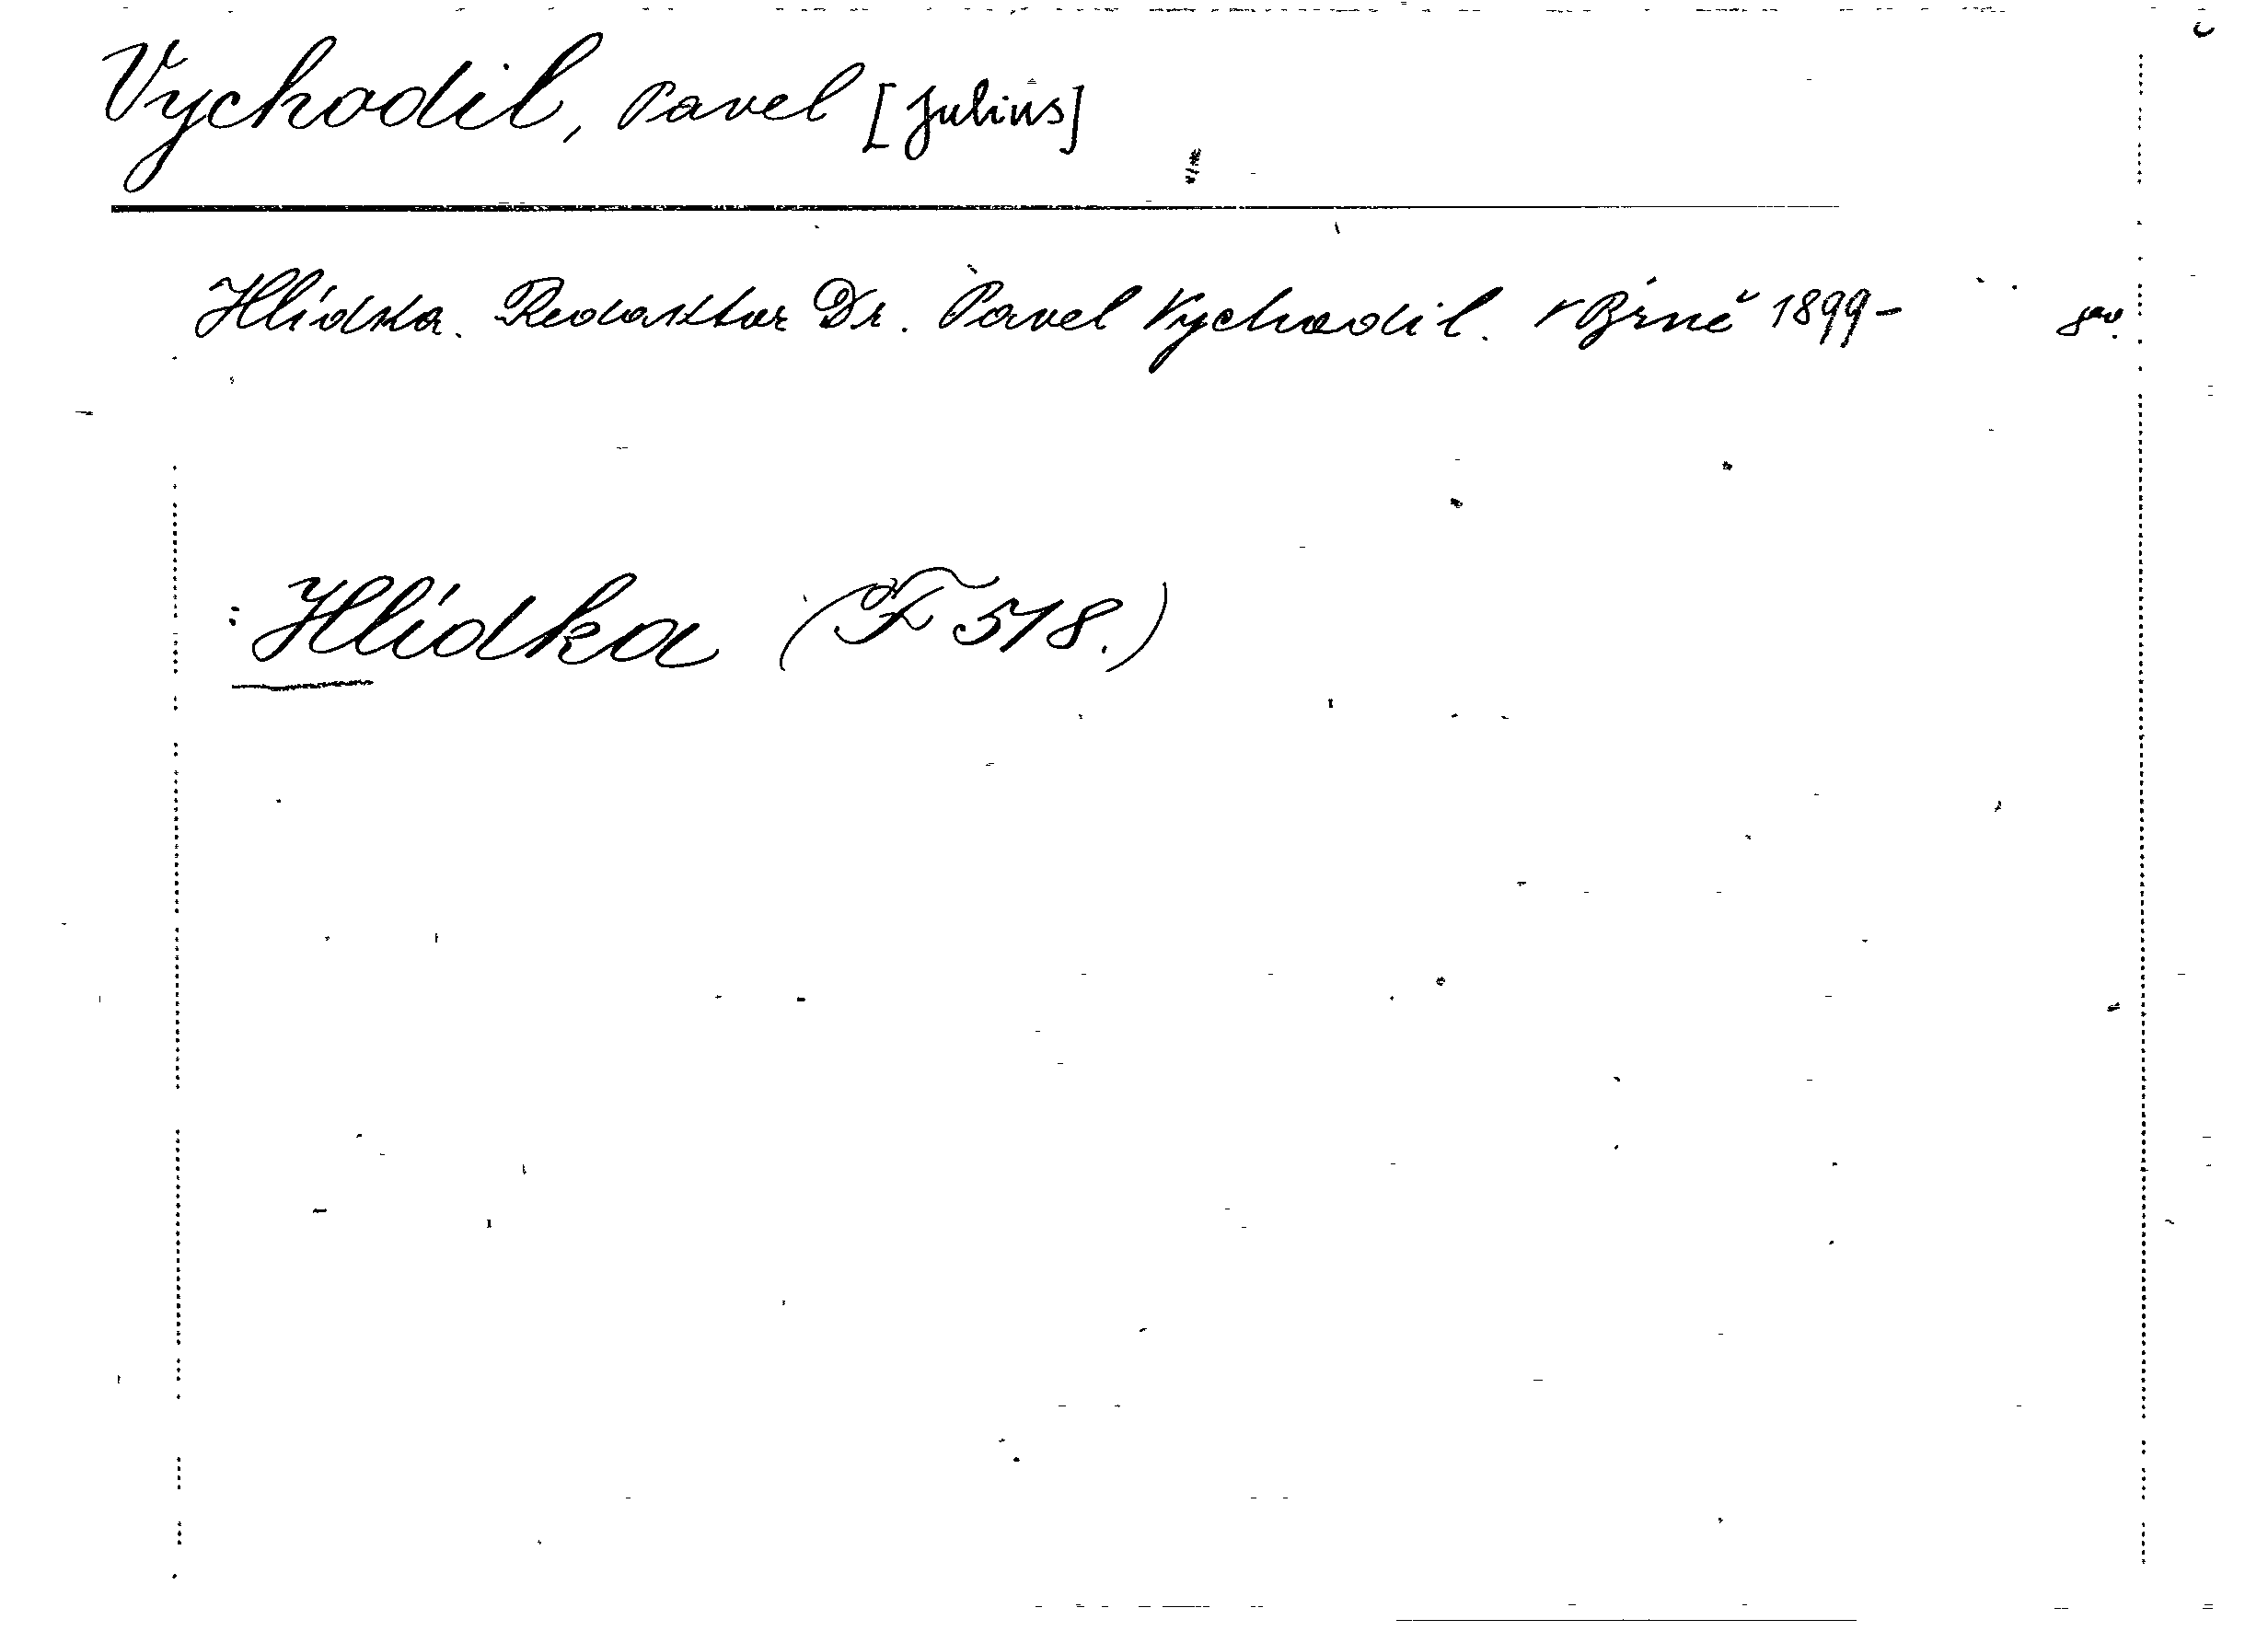 Vychodil, Pavel [Julius]
Hlídka. Redaktor Dr. Pavel Vychodil. v Brně 1899-
: Hlídka (F 518.)